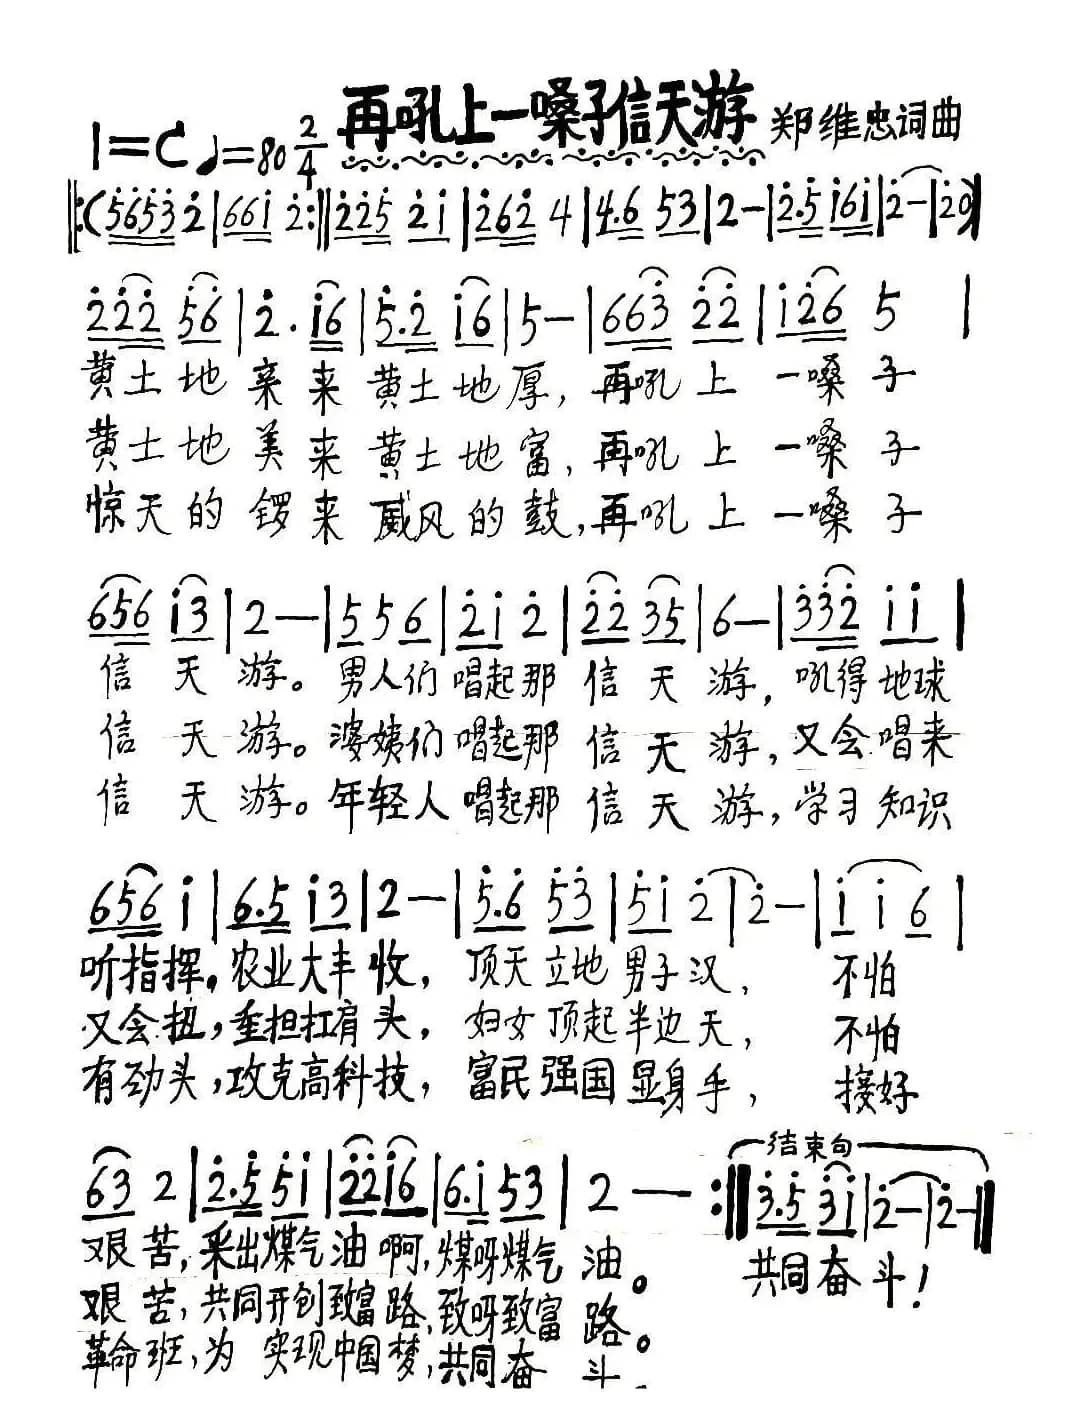 再吼上一嗓子信天游 郑维忠词曲
1=C ♩=80 2/4
‖:(5653 2|661 2:‖225 21|262 4|4.6 53|2-|2.5 161|2-|20)
222 56|2. 16|5.2 16|5-|663 22|126 5|
黄土地亲来黄土地厚,再吼上一嗓子
黄土地美来黄土地富,再吼上一嗓子
惊天的锣来威风的鼓,再吼上一嗓子
656 13|2-|5 5 6|21 2|22 35|6-|332 11|
信天游。男人们唱起那信天游,吼得地球
信天游。婆姨们唱起那信天游,又会唱来
信天游。年轻人唱起那信天游,学习知识
656 1|6.5 13|2-|5.6 53|51 2|2-|1 1 6|
听指挥。农业大丰收,顶天立地男子汉,不怕
又会扭,重担扛肩头,妇女顶起半边天,不怕
有劲头,攻克高科技,富民强国显身手,接好
结束句
63 2|2.5 51|22 16|6.1 53|2-:‖3.5 31|2-|2-‖
艰苦,采出煤气油啊,煤呀煤气油。 共同奋斗!
艰苦,共同开创致富路,致呀致富路。
革命班,为实现中国梦,共同奋斗.